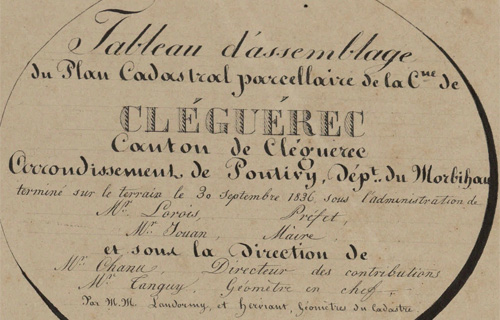 Tableau d'assemblage
du Plan Cadastral parcellaire de la Cne de
CLÉGUÉREC
Canton de Cléguerec
Arrondissement de Pontivy, Dépt. du Morbihan
terminé sur le terrain le 30 Septembre 1836, sous l'administration de
Mr. Lorois, Préfet,
Mr. Jouan, Maire.
et sous la Direction de
Mr. Chanu, Directeur des contributions
Mr. Tanguy, Géomètre en chef
Par M.M. Landormy, et Hervant, Géomètres du cadastre.